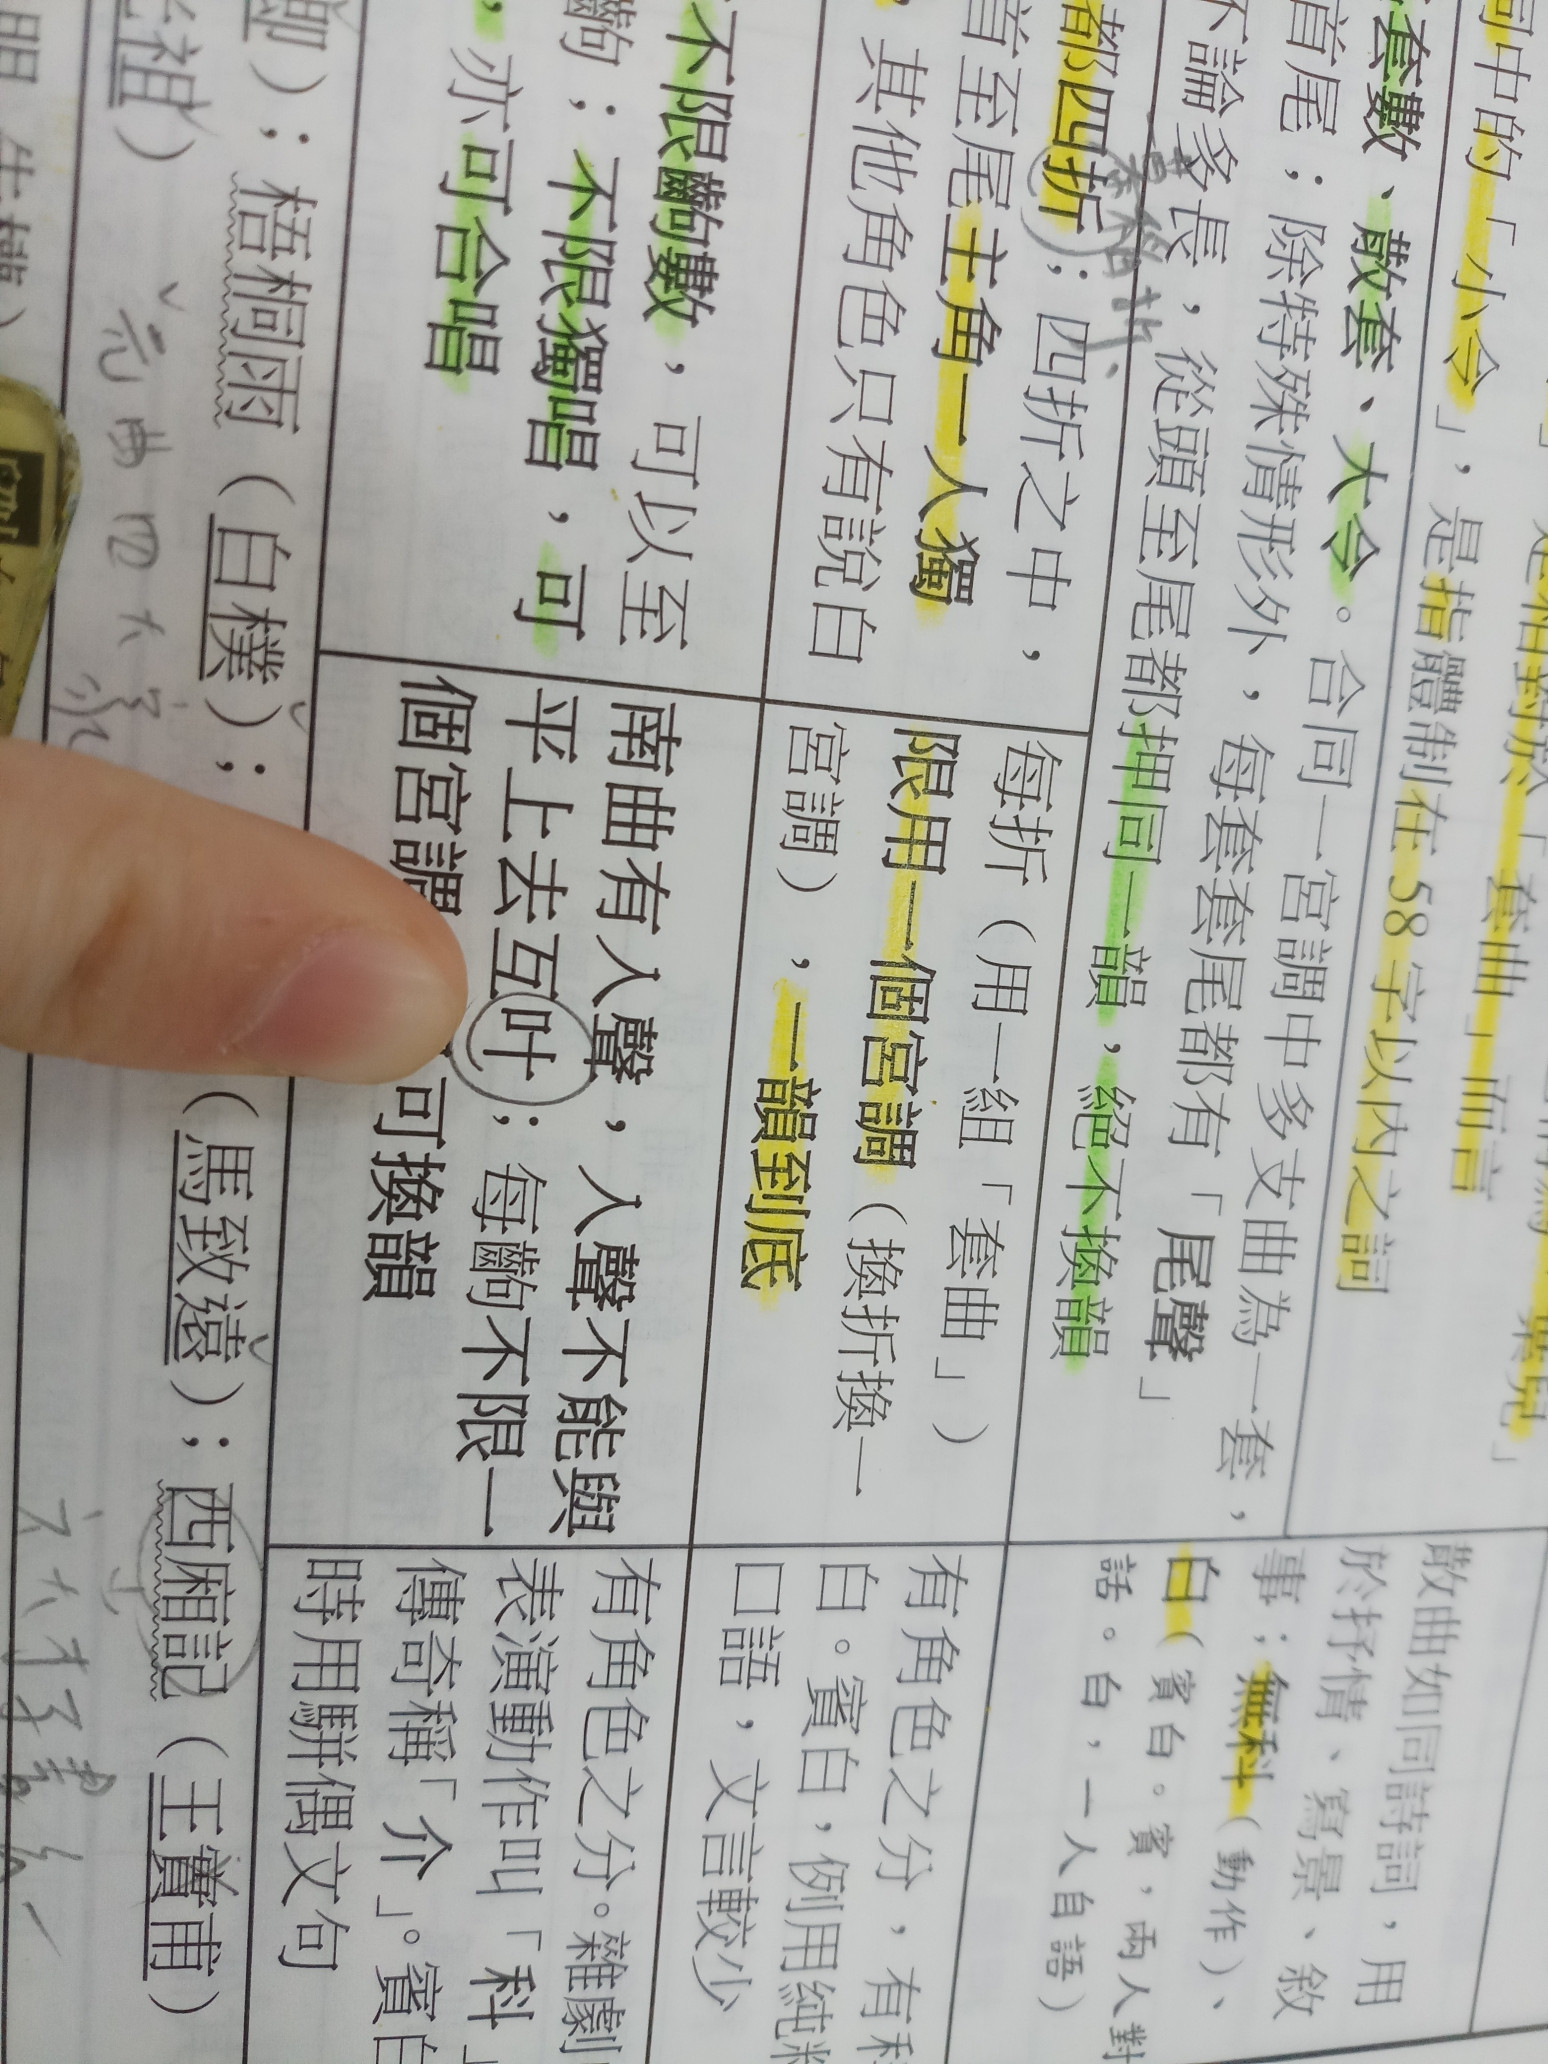 詞中的「小令」，是指體制在58字以內之詞
是相對於「套曲」而言
套數、散套、大令。合同一宮調中多支曲為一套，
首尾；除特殊情形外，每套套尾都有「尾聲」
不論多長，從頭至尾都押同一韻，絕不換韻
散曲如同詩詞，用
於抒情、寫景、敘
事；無科（動作）、
白（賓白。賓，兩人對
話。白，一人自語）
都四折；四折之中，
首至尾主角一人獨
，其他角色只有說白
每折（用一組「套曲」）
限用一個宮調（換折換一
宮調），一韻到底
有角色之分，有科
白。賓白，例用純粹
口語，文言較少
不限齣數，可以至
齣；不限獨唱，可
，亦可合唱
南曲有入聲，入聲不能與
平上去互叶；每齣不限一
個宮調
可換韻
有角色之分。雜劇
表演動作叫「科」
傳奇稱「介」。賓白
時用駢偶文句
；梧桐雨（白樸）；
（馬致遠）；西廂記（王實甫）
祖）
元曲四大家